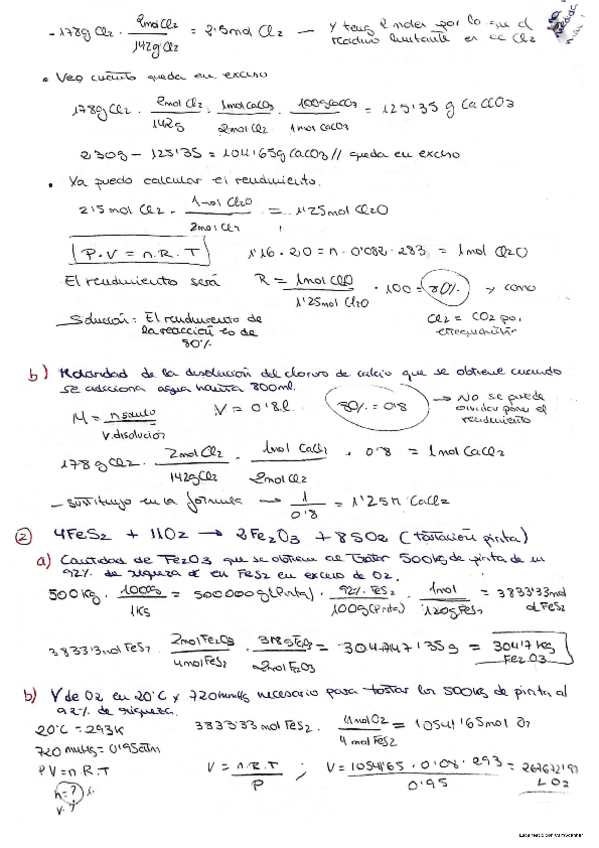 - 178g Cl2 · 2mol Cl2 / 142g Cl2 = 2'5mol Cl2 — y tengo 2 moles por lo que el
reactivo limitante es el Cl2
• Veo cuánto queda en exceso
178g Cl2 · 2mol Cl2 / 142g · 1mol CaCO3 / 2mol Cl2 · 100g CaCO3 / 1mol CaCO3 = 125'35 g CaCO3
230g - 125'35 = 104'65g CaCO3 // queda en exceso
• Ya puedo calcular el rendimiento.
2'5mol Cl2 · 1mol Cl2O / 2mol Cl2 = 1'25mol Cl2O
P·V = n·R·T 1'16 · 20 = n · 0'082 · 283 = 1mol Cl2O
El rendimiento será R = 1mol Cl2O / 1'25mol Cl2O · 100 = 80% → como
Cl2 = CO2 por
Solución: El rendimiento de
la reacción es de
80%
b) Molaridad de la disolución del cloruro de calcio que se obtiene cuando
se adiciona agua hasta 800ml.
M = nsoluto / V.disolución V = 0'8l. 80% = 0'8 → No se puede
olvidar poner el
rendimiento
178g Cl2 · 2mol Cl2 / 142g Cl2 · 1mol CaCl2 / 2mol Cl2 · 0'8 = 1mol CaCl2
- sustituyo en la fórmula → 1 / 0'8 = 1'25M CaCl2
② 4FeS2 + 11O2 → 2Fe2O3 + 8SO2 (tostación pirita)
a) Cantidad de Fe2O3 que se obtiene al tratar 500kg de pirita de un
92% de riqueza en FeS2 en exceso de O2.
500kg · 1000g / 1kg = 500000g (Pirita) · 92% FeS2 / 100g (Pirita) · 1mol / 120g FeS2 = 3833'33mol
de FeS2
3833'33mol FeS2 · 2mol Fe2O3 / 4mol FeS2 · 318g Fe2O3 / 2mol Fe2O3 = 304747'35g = 304'7 kg
Fe2O3
b) V de O2 en 20°C y 720mmHg necesario para tostar los 500kg de pirita al
92% de riqueza.
20°C = 293K 3833'33mol FeS2 · 11molO2 / 4 mol FeS2 = 10541'65mol O2
720 mmHg = 0'95atm
PV = n·R·T V = n·R·T / P ; V = 10541'65 · 0'08 · 293 / 0'95 =
L O2
n = ?
V ?